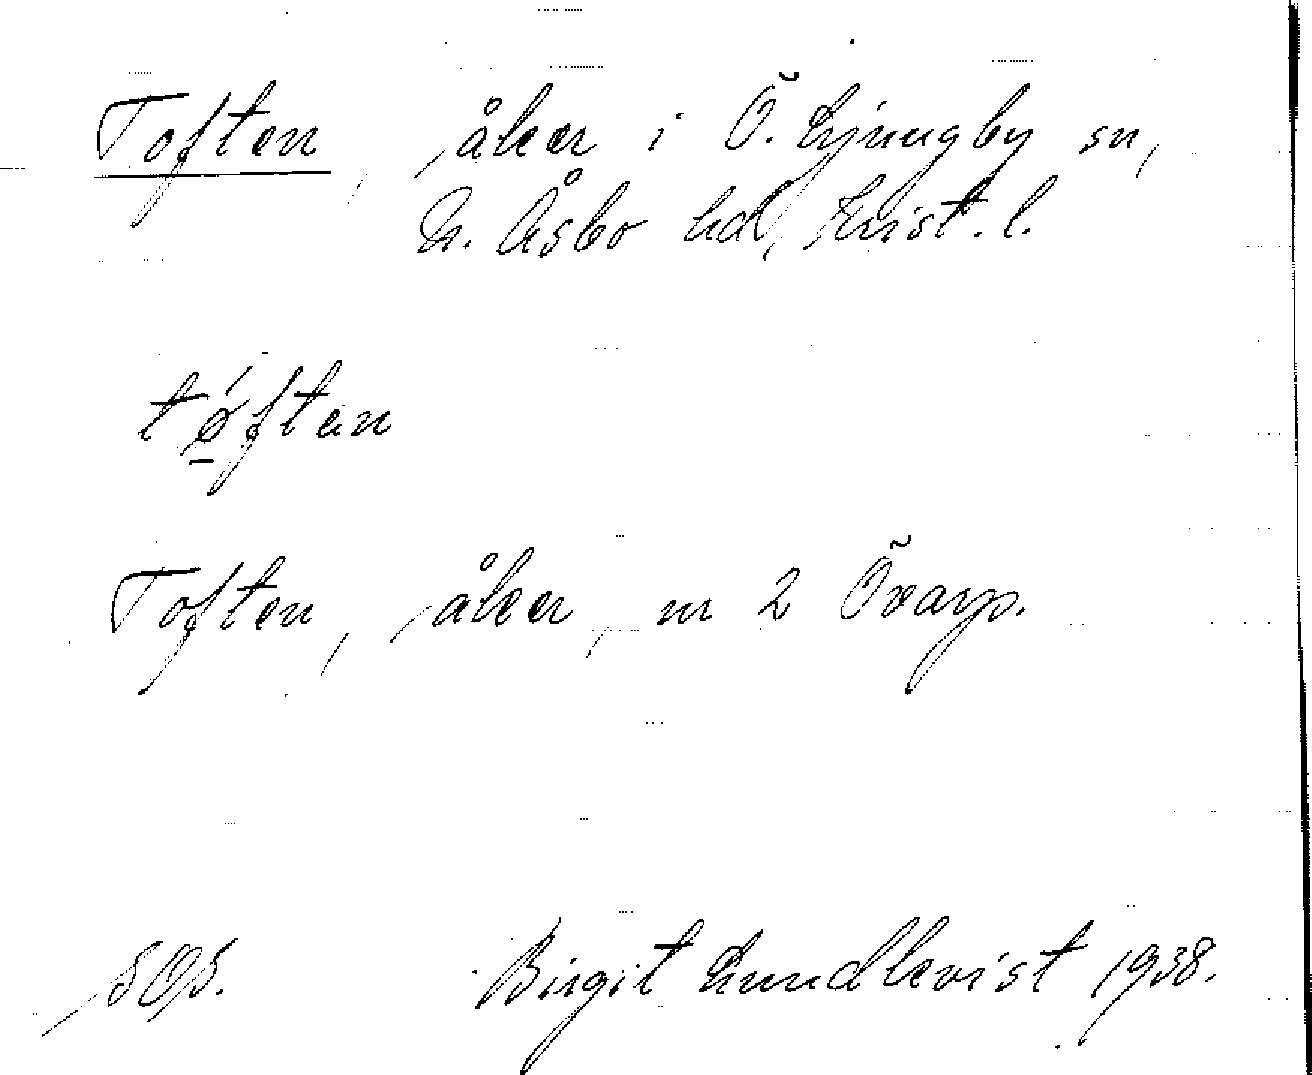 Toften, åker i Ö. Ljungby sn,
N. Åsbo hd, Krist. l.
tǿ̱ften
Toften, åker, nr 2 Öxarp.
SOS. Birgit Lundkvist 1938.